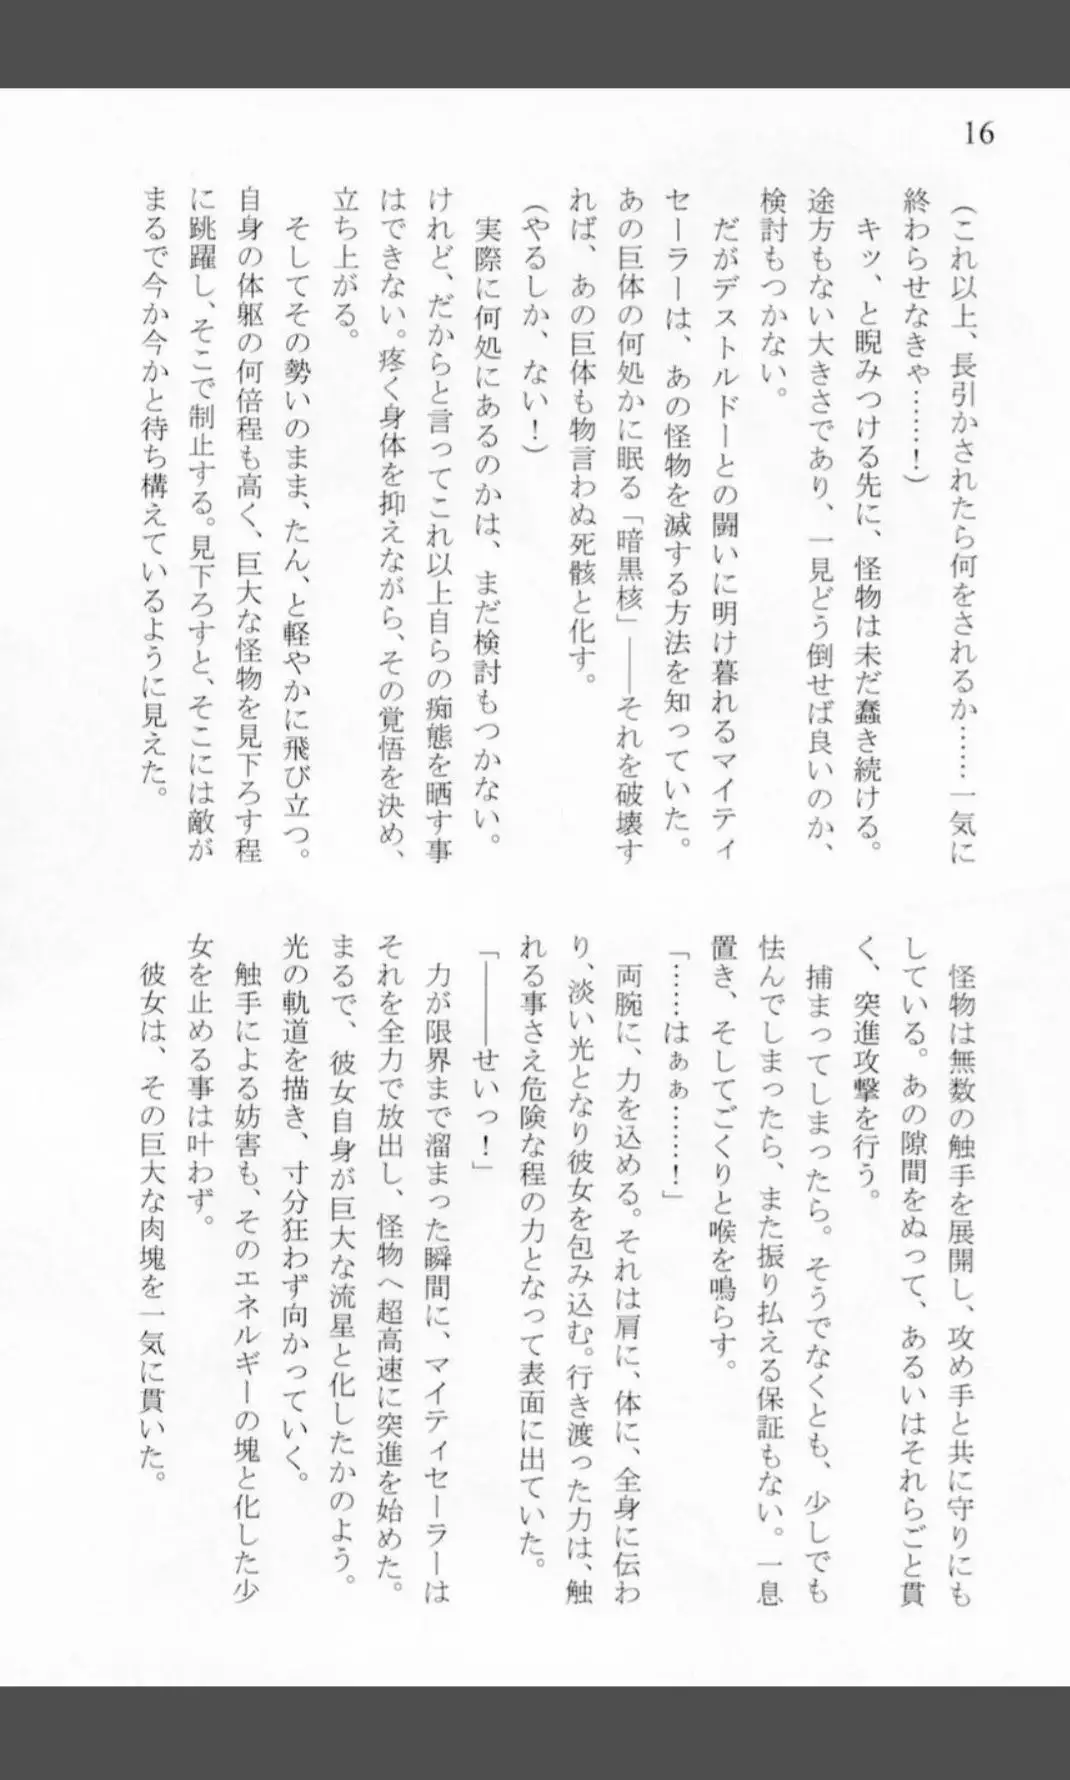 16
（これ以上、長引かされたら何をされるか……一気に
終わらせなきゃ……！）
キッ、と睨みつける先に、怪物は未だ蠢き続ける。
途方もない大きさであり、一見どう倒せば良いのか、
検討もつかない。
だがデストルドーとの闘いに明け暮れるマイティ
セーラーは、あの怪物を滅する方法を知っていた。
あの巨体の何処かに眠る「暗黒核」――それを破壊す
れば、あの巨体も物言わぬ死骸と化す。
（やるしか、ない！）
実際に何処にあるのかは、まだ検討もつかない。
けれど、だからと言ってこれ以上自らの痴態を晒す事
はできない。疼く身体を抑えながら、その覚悟を決め、
立ち上がる。
そしてその勢いのまま、たん、と軽やかに飛び立つ。
自身の体躯の何倍程も高く、巨大な怪物を見下ろす程
に跳躍し、そこで制止する。見下ろすと、そこには敵が
まるで今か今かと待ち構えているように見えた。
怪物は無数の触手を展開し、攻め手と共に守りにも
している。あの隙間をぬって、あるいはそれらごと貫
く、突進攻撃を行う。
捕まってしまったら。そうでなくとも、少しでも
怯んでしまったら、また振り払える保証もない。一息
置き、そしてごくりと喉を鳴らす。
「……はぁぁ……！」
両腕に、力を込める。それは肩に、体に、全身に伝わ
り、淡い光となり彼女を包み込む。行き渡った力は、触
れる事さえ危険な程の力となって表面に出ていた。
「―――せいっ！」
力が限界まで溜まった瞬間に、マイティセーラーは
それを全力で放出し、怪物へ超高速に突進を始めた。
まるで、彼女自身が巨大な流星と化したかのよう。
光の軌道を描き、寸分狂わず向かっていく。
触手による妨害も、そのエネルギーの塊と化した少
女を止める事は叶わず。
彼女は、その巨大な肉塊を一気に貫いた。